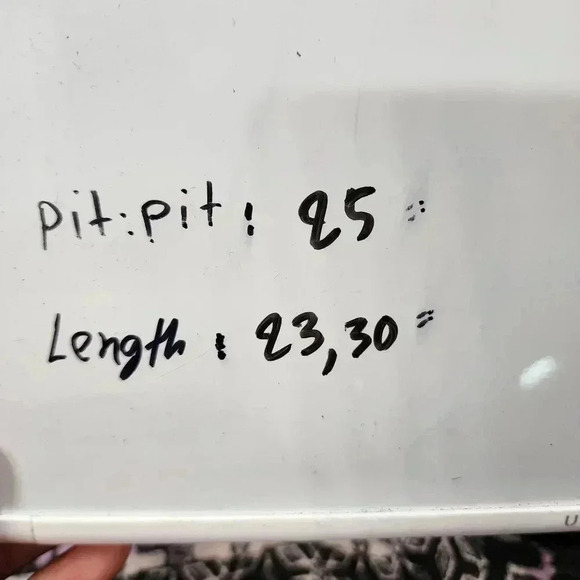 pit:pit: 25"
Length: 23,30"